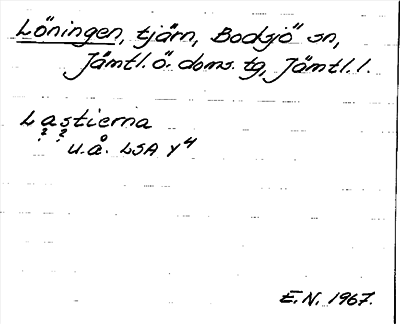 Löningen, tjärn, Bodsjö sn,
Jämtl. ö. doms. tg, Jämtl. l.
Lastierna
? ?
u.å. LSA Y4
E.N. 1967.